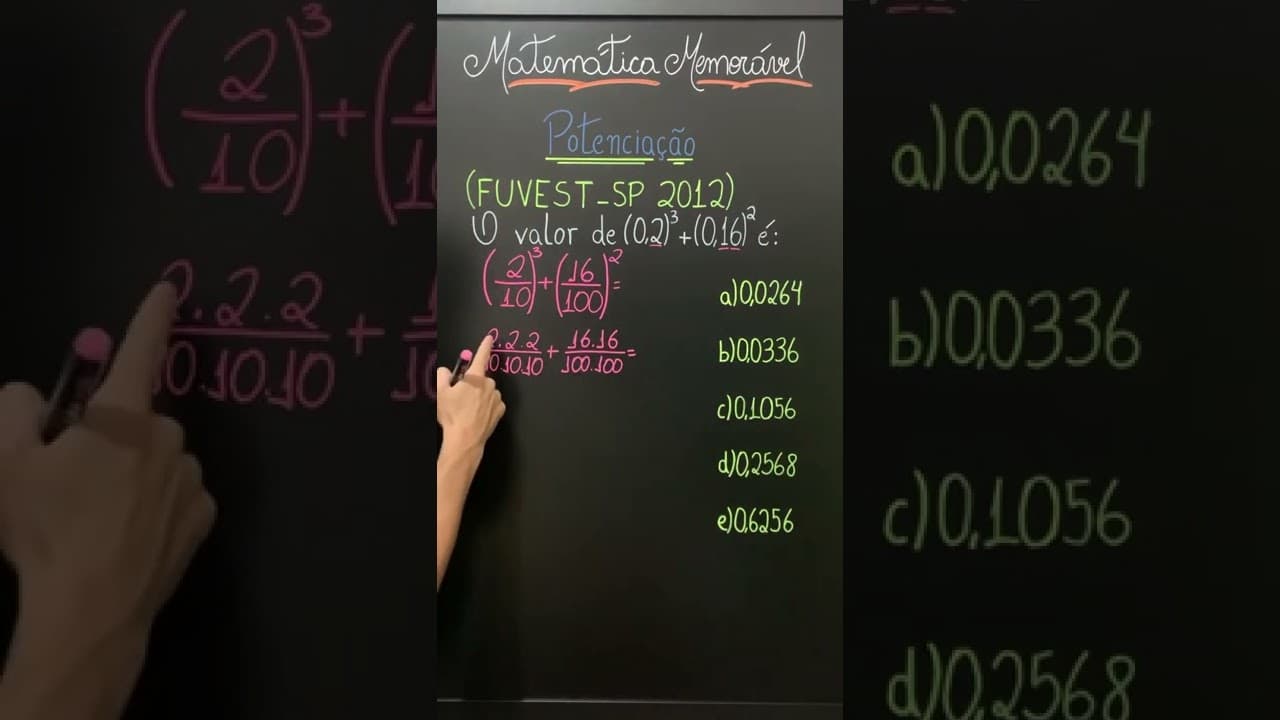 Matemática Memorável
Potenciação
(FUVEST-SP 2012)
O valor de (0,2)³+(0,16)² é:
(2/10)³+(16/100)²=
2.2.2/10.10.10 + 16.16/100.100=
a)0,0264
b)0,0336
c)0,1056
d)0,2568
e)0,6256